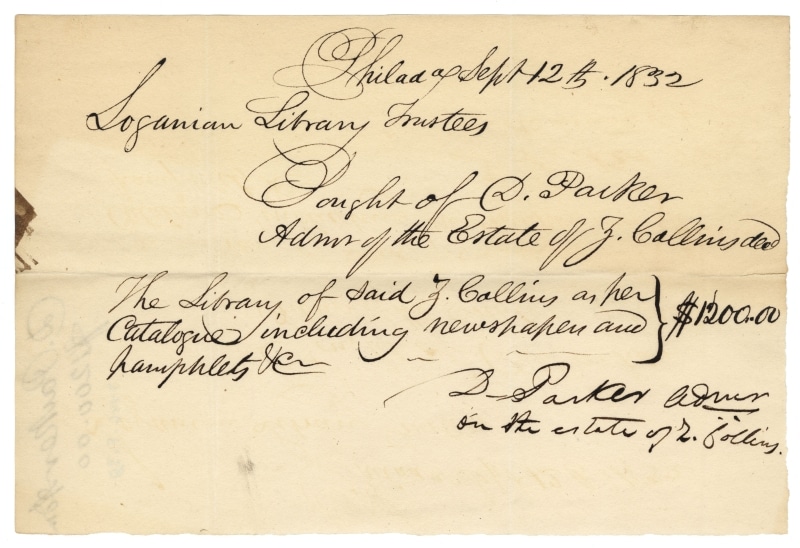 Philada Sept 12th. 1832
Loganian Library Trustees
Bought of D. Parker
Admr of the Estate of Z. Collins decd
The Library of said Z. Collins as per
Catalogue including newspapers and
pamphlets &c
$1200.00
D Parker admr
on the estate of Z. Collins.
$1200.00